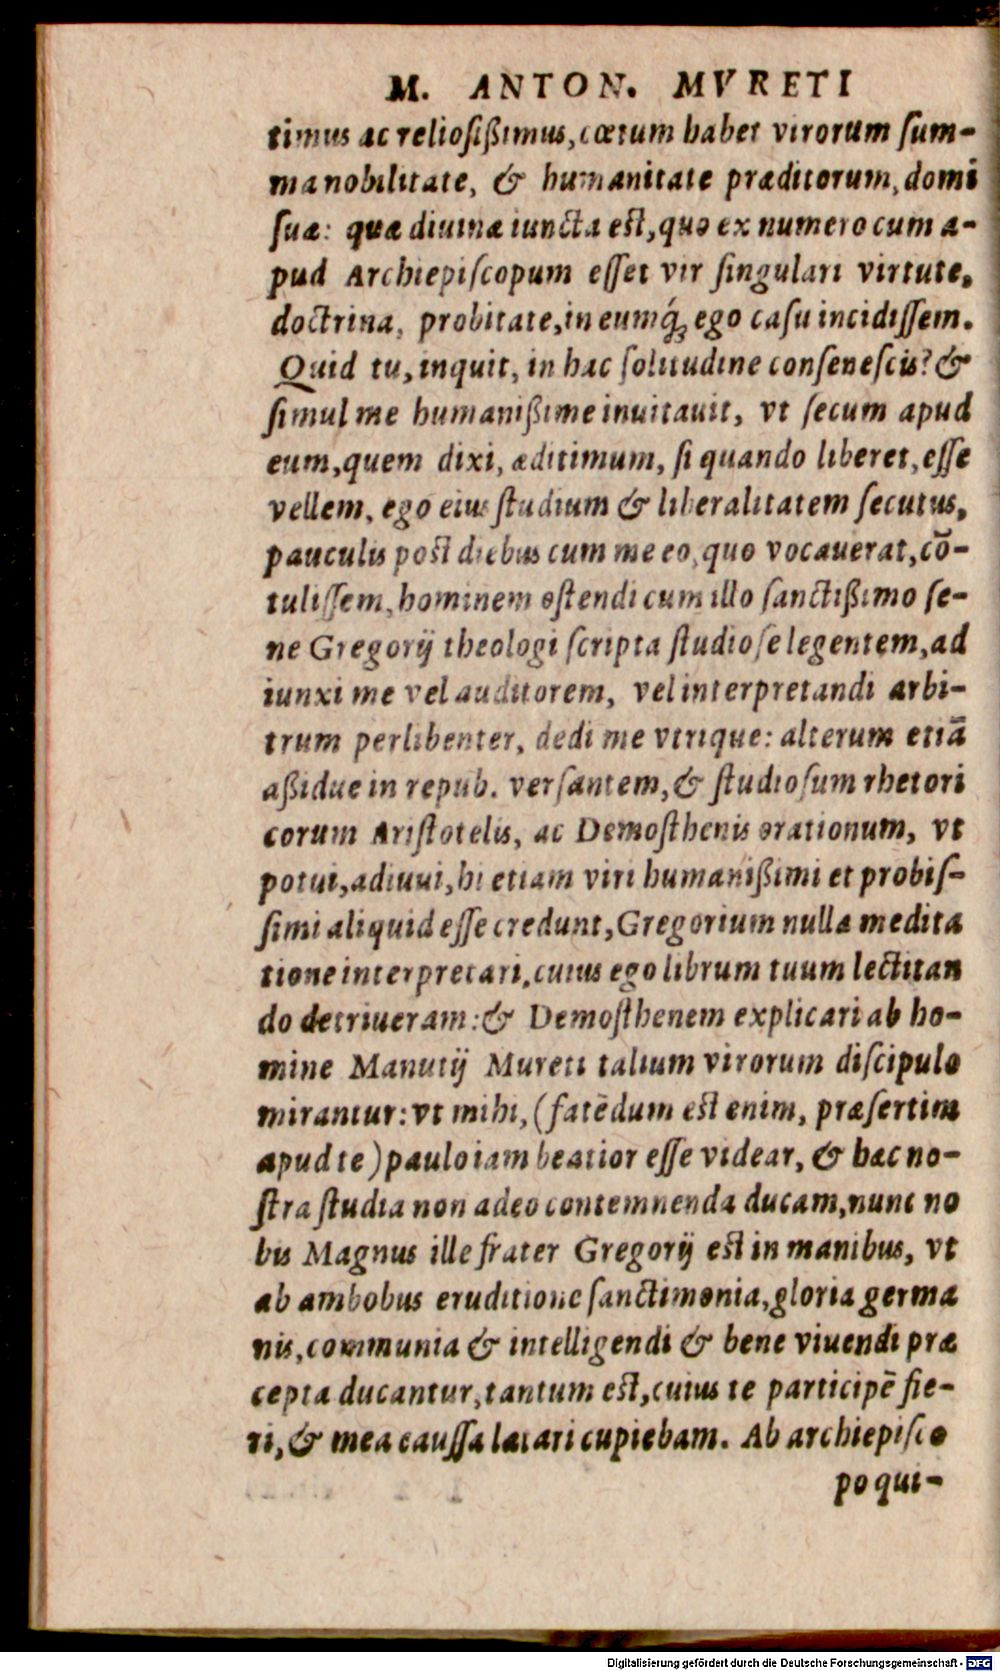 M. ANTON. MVRETI
timus ac reliosißimus, cœtum habet virorum sum-
ma nobilitate, & humanitate præditorum, domi
suæ: quæ diuinæ iuncta est, quo ex numero cum a-
pud Archiepiscopum esset vir singulari virtute,
doctrina, probitate, in eumq́; ego casu incidissem.
Quid tu, inquit, in hac solitudine consenescis? &
simul me humanißime inuitauit, vt secum apud
eum, quem dixi, æditimum, si quando liberet, esse
vellem, ego eius studium & liberalitatem secutus,
pauculis post diebus cum me eo, quo vocauerat, cō-
tulissem, hominem ostendi cum illo sanctißimo se-
ne Gregorij theologi scripta studiose legentem, ad
iunxi me vel auditorem, vel interpretandi arbi-
trum perlibenter, dedi me vtrique: alterum etiā
aßidue in repub. versantem, & studiosum rhetori
corum Aristotelis, ac Demosthenis orationum, vt
potui, adiuui, hi etiam viri humanißimi et probis-
simi aliquid esse credunt, Gregorium nulla medita
tione interpretari, cuius ego librum tuum lectitan
do detriueram: & Demosthenem explicari ab ho-
mine Manutij Mureti talium virorum discipulo
mirantur: vt mihi, (fatēdum est enim, præsertim
apud te) paulo iam beatior esse videar, & hæc no-
stra studia non adeo contemnenda ducam, nunc no
bis Magnus ille frater Gregorij est in manibus, vt
ab ambobus eruditione sanctimonia, gloria germa
nis, communia & intelligendi & bene viuendi præ
cepta ducantur, tantum est, cuius te participē fie-
ri, & mea caussa lætari cupiebam. Ab archiepisco
po qui-
Digitalisierung gefördert durch die Deutsche Forschungsgemeinschaft - DFG